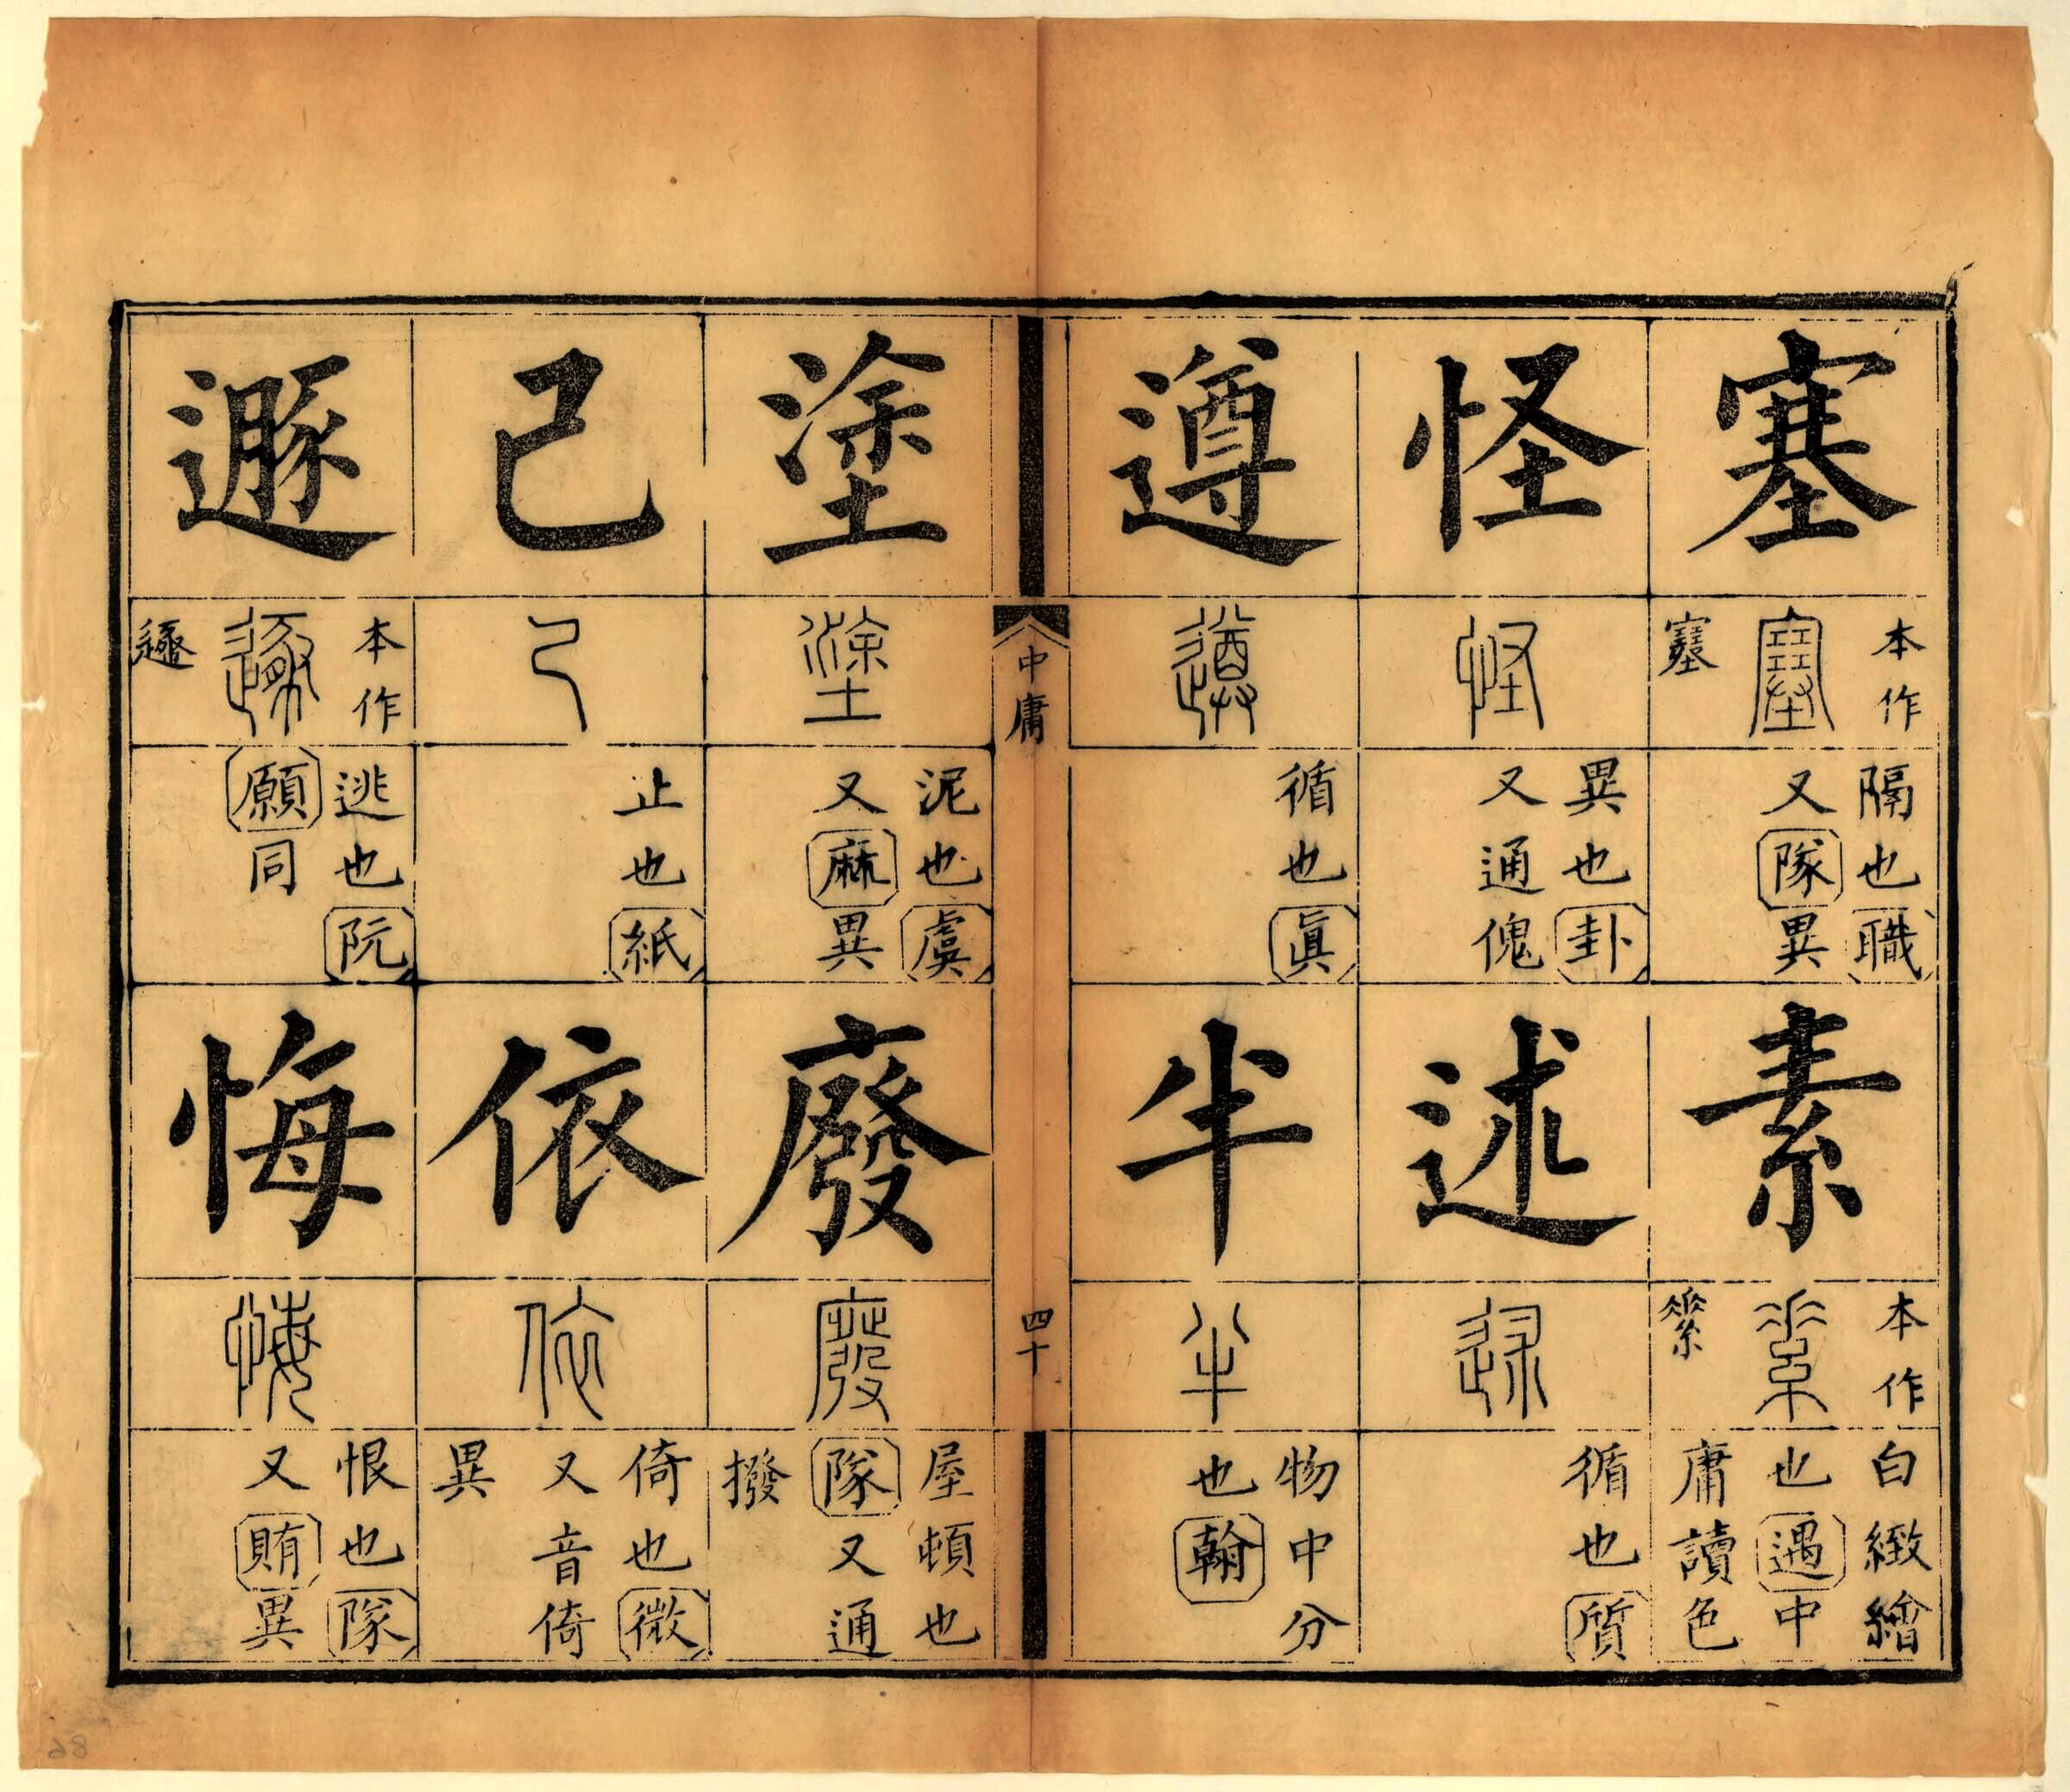 塞
本作
𡫳
隔也職
又隊異
素
本作
白緻繒
也遇中
庸讀色
怪
異也卦
又通傀
述
循也質
遵
循也眞
半
物中分
也翰
中庸
四十
塗
泥也虞
又麻異
廢
屋頓也
隊又通
撥
己
止也紙
依
倚也微
又音倚
異
遯
本作
逃也阮
願同
悔
恨也隊
又賄異